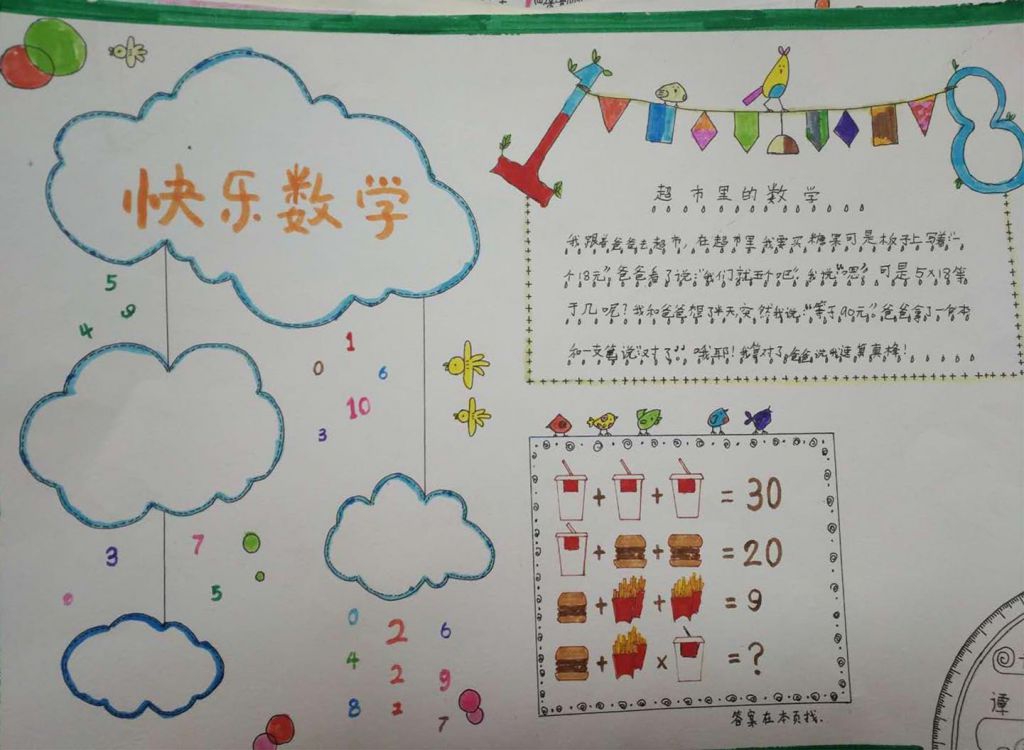 快乐数学
5
9
4
1
0
6
10
3
3
7
5
0
0
2
6
4
2
9
8
2
7
1
8
超市里的数学
我跟着爸爸去超市,在超市里我要买糖果可是板子上写着:一
个18元”爸爸看了说:“我们就五个吧”我说“嗯”可是5×18等
于几呢?我和爸爸想了半天,突然我说:“等于90元”爸爸拿了一个本
和一支笔说:“对了”。哦耶!我算对了,爸爸说我速算真棒!
+ + = 30
+ + = 20
+ + = 9
+ × = ?
答案在本页找.
谭